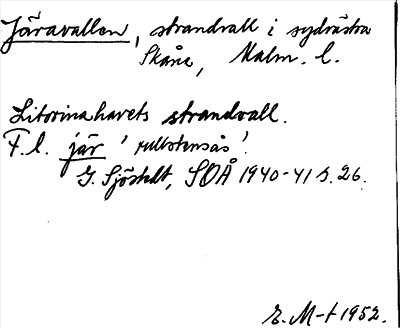 Järavallen, strandvall i sydvästra
Skåne, Malm. l.
Litorinahavets strandvall.
F.l. jär 'rullstensås'.
G. Sjöstedt, SOÅ 1940-41 s. 26.
E. M-t 1952.